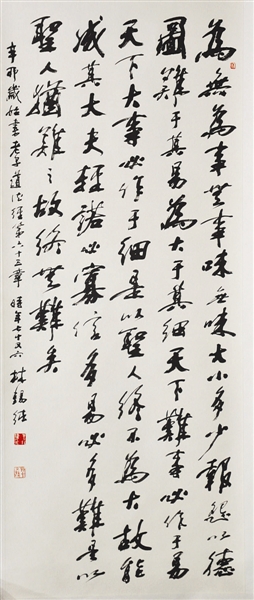 為無為事無事味無味大小多少報怨以德
圖難于其易為大于其細天下難事必作于易
天下大事必作于細是以聖人終不為大故能
成其大夫輕諾必寡信多易必多難是以
聖人猶難之故終無難矣
辛卯歲 書老子道德經第六十三章 時年七十又六 林